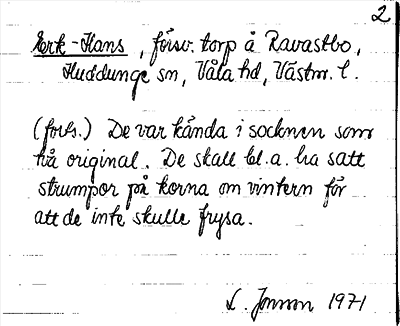 2
Eerk-Hans, försv. torp å Ravastbo,
Huddunge sn, Våla hd, Västm. l.
(forts.) De var kända i socknen som
två original. De skall bl.a. ha satt
strumpor på korna om vintern för
att de inte skulle frysa.
L. Jonson 1971